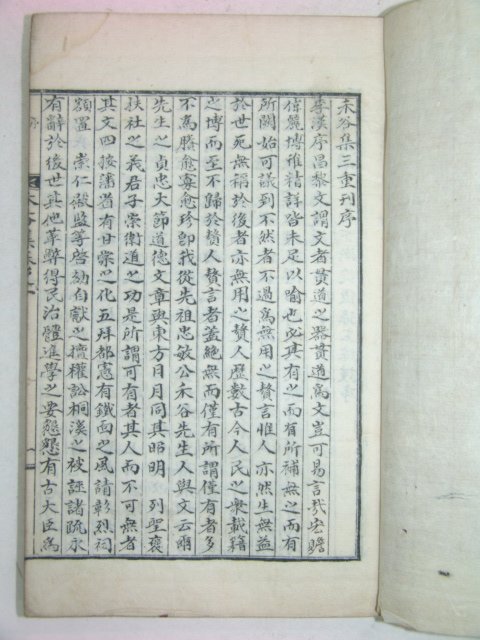 禾谷集三重刊序
李漢序昌黎文謂文者貫道之器貫道爲文豈可易言哉宏贍
偉麗博雅精詳皆未足以喻也必其有之而有所補無之而有
所闕始可議到不然者不過爲無用之贅言惟人亦然生無益
於世死無稱於後者亦無用之贅人歷數古今人民之衆載籍
之博而至不歸於贅人贅言者蓋絶無而僅有所謂僅有者多
不爲勝愈寡愈珍卽我從先祖忠敏公禾谷先生人與文云爾
先生之貞忠大節道德文章與東方日月同其昭明 列聖褒
扶社之義君子崇衛道之功是所謂可有者其人而不可無者
其文四按藩省有甘棠之化五拜都憲有鐵面之風請彰烈祠
額置 崇仁徽監等啓納自獻之擅權訟桐溪之被誣諸疏永
有辭於後世其他革弊得民治體進學之要懇懇有古大臣爲
序